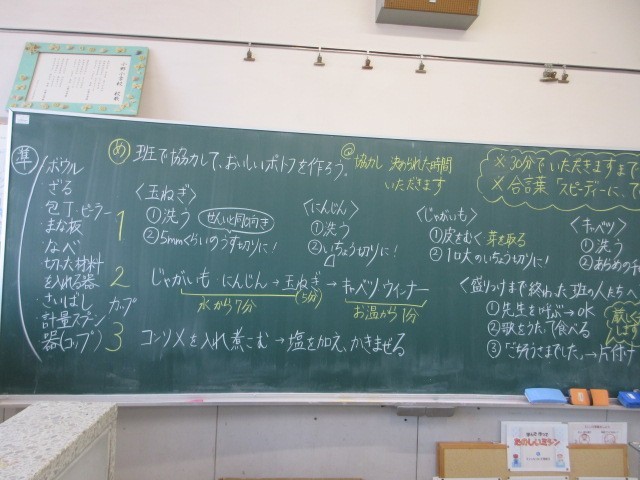 準
ボウル
ざる
包丁・ピーラー
まな板
なべ
切った材料
を入れる器
さいばし カップ
計量スプーン
器(コップ)
め 班で協力して、おいしいポトフを作ろう。
協力し 決められた時間
いただきます
※30分でいただきますまで
※合言葉「スピーディーに、て
1
〈玉ねぎ〉
①洗う
せんいと同じ向き
②5mmくらいのうす切りに!
〈にんじん〉
①洗う
②いちょう切りに!
〈じゃがいも〉
①皮をむく 芽を取る
②1口大のいちょう切りに!
〈キャベツ〉
①洗う
②あらめのチ
2 じゃがいも にんじん→玉ねぎ→キャベツウィンナー
水から7分
(5分)
お温から1分
3 コンソメを入れ煮こむ→塩を加え、かきまぜる
盛りつけまで終わった班の人たちへ
①先生を呼ぶ→OK
②歌をうたって食べる
③「ごちそうさまでした」→片付け
たのしいミシン